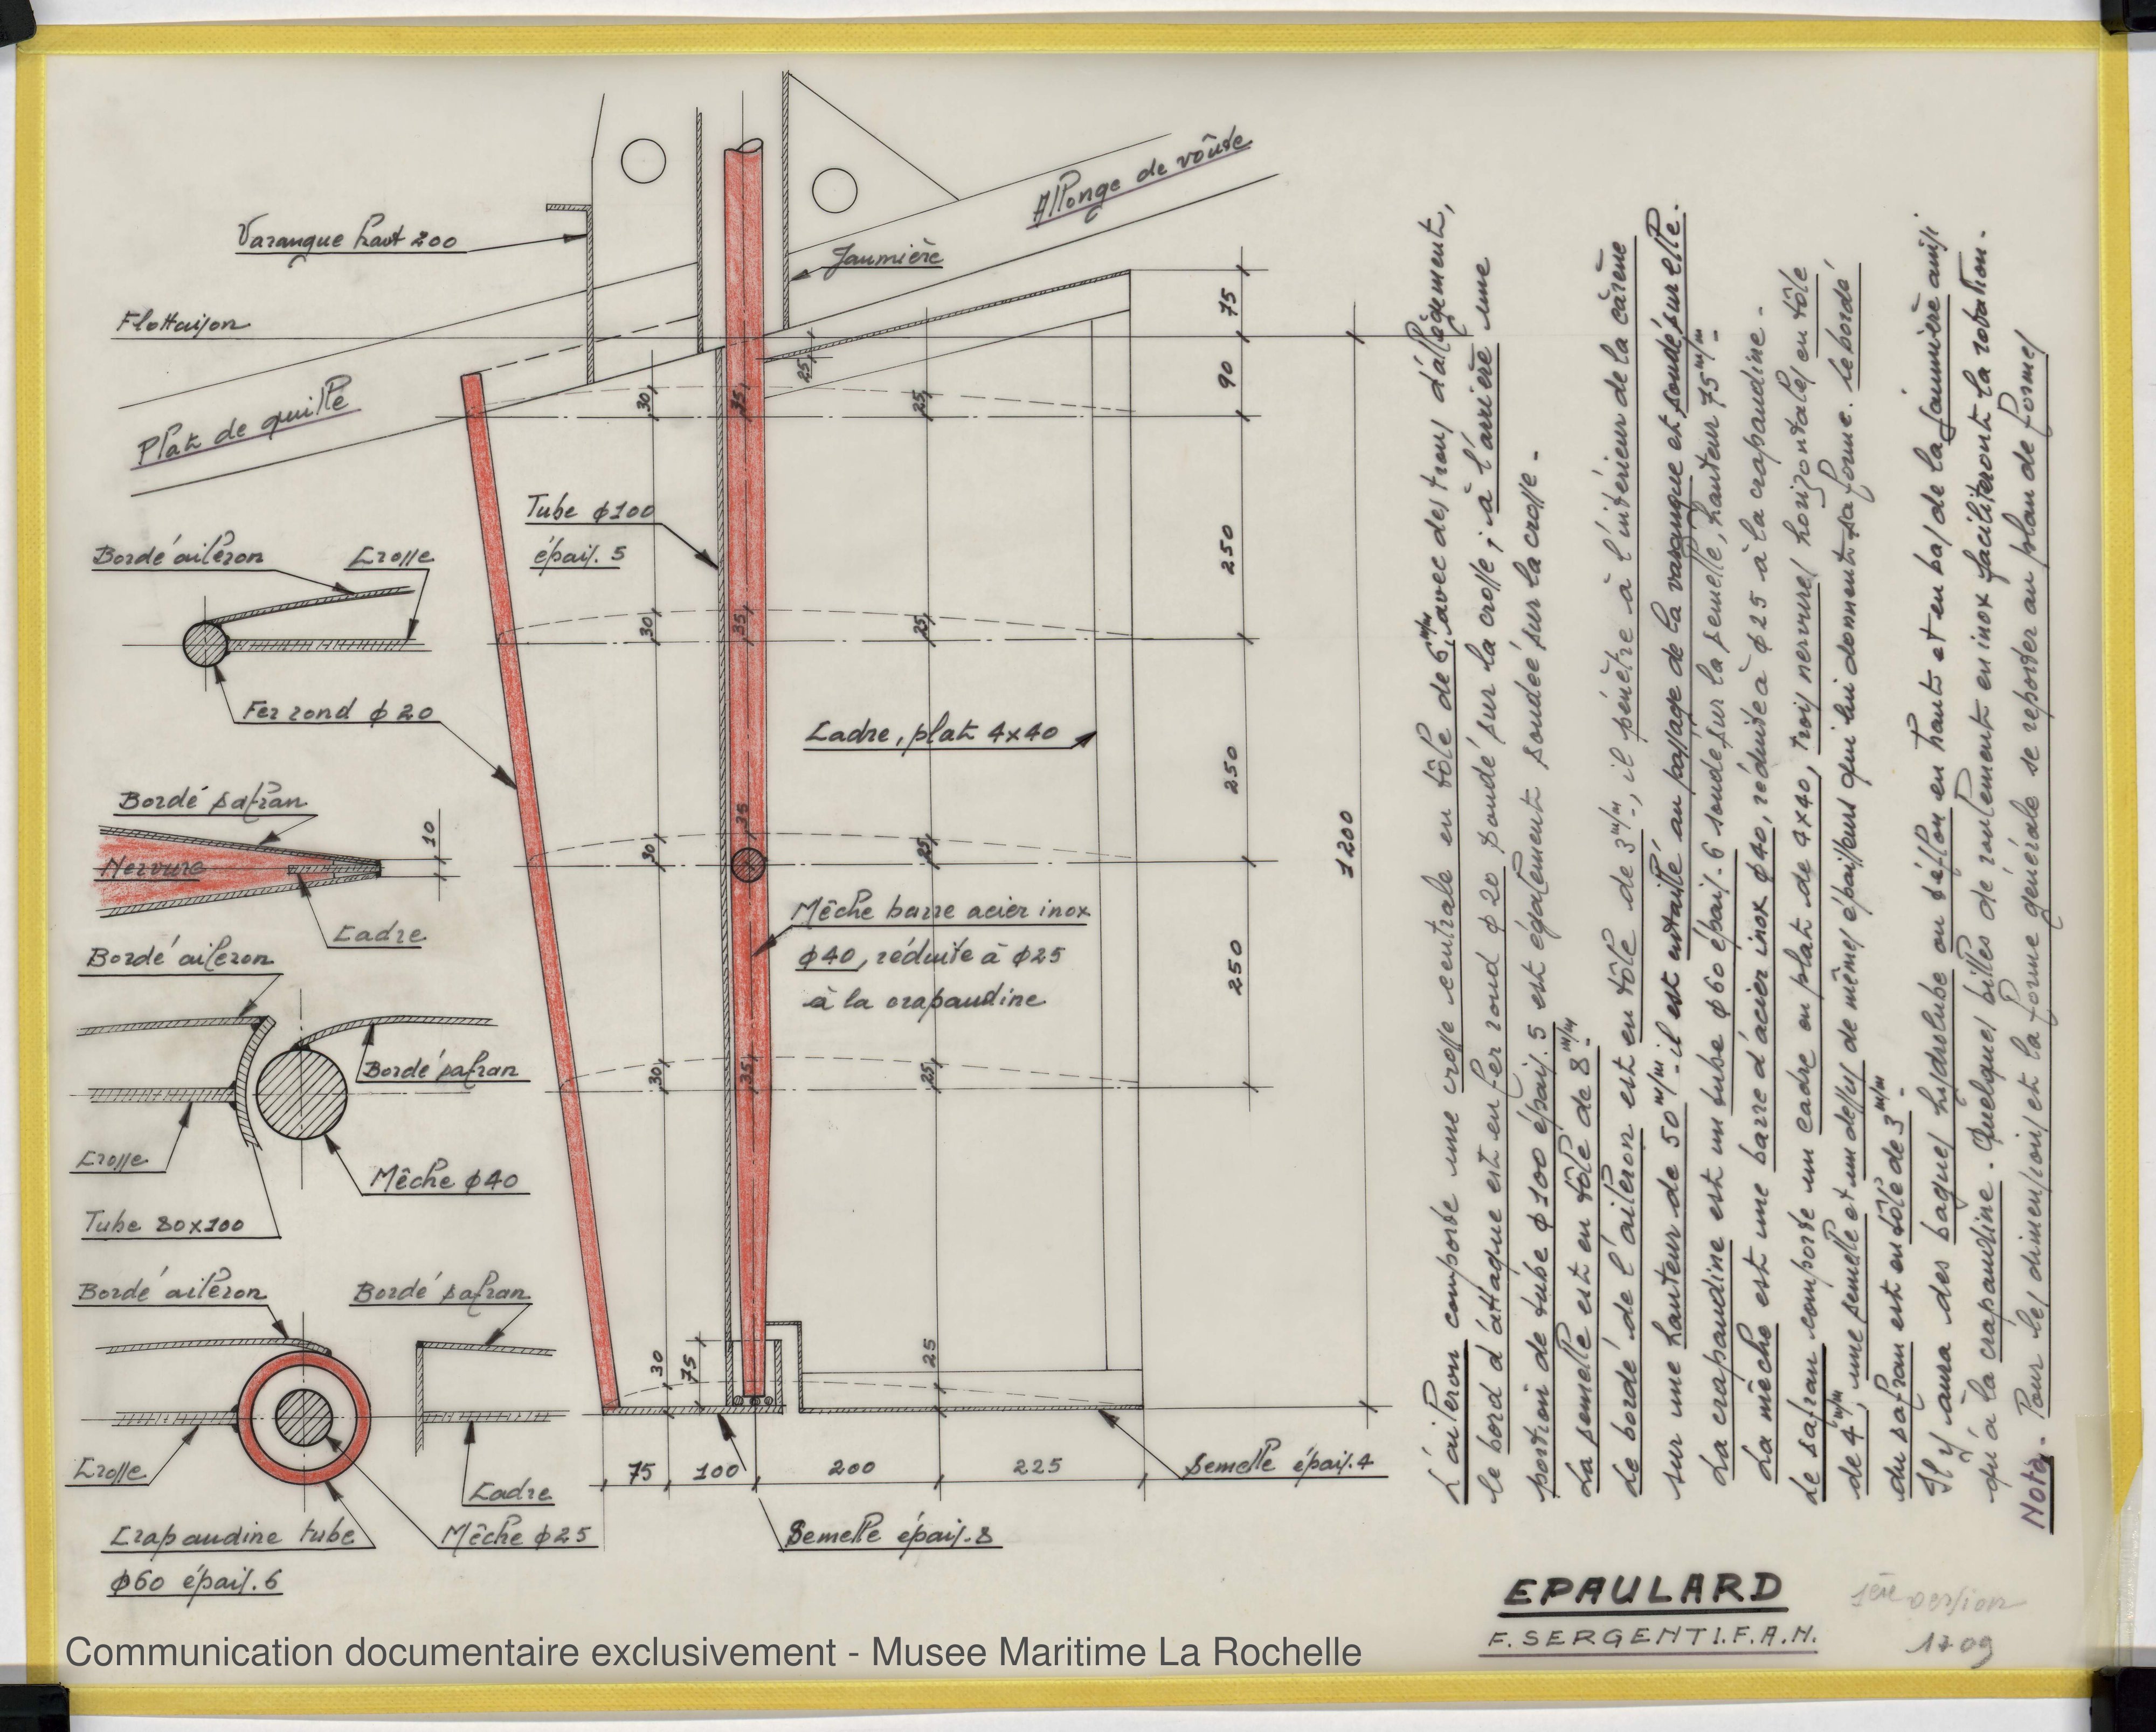 Varangue haut 200
Flottaison
Plat de quille
Allonge de voûte
Jaumière
75
25
90
30
35
25
Tube ϕ100
épais. 5
250
Bordé aileron
Crosse
30
35
25
Fer rond ϕ 20
Cadre, plat 4x40
Bordé safran
10
Nervure
Cadre
250
30
35
25
1200
Mêche barre acier inox
ϕ40, réduite à ϕ25
à la crapaudine
Bordé aileron
Bordé safran
Crosse
Mêche ϕ40
Tube 80x100
250
30
35
25
Bordé aileron
Bordé safran
Crosse
Cadre
Crapaudine tube
ϕ60 épais. 6
Mêche ϕ25
30
75
25
75
100
200
225
Semelle épais. 4
Semelle épais. 8
L'aileron comporte une crosse centrale en tôle de 6 m/m, avec des trous d'allègement,
le bord d'attaque est en fer rond ϕ 20 soudé sur la crosse ; à l'arrière une
portion de tube ϕ 100 épais. 5 est également soudée sur la crosse.
La semelle est en tôle de 8 m/m.
Le bordé de l'aileron est en tôle de 3 m/m, il pénètre à l'intérieur de la carène
sur une hauteur de 50 m/m. il est entaillé au passage de la varangue et soudé sur elle.
La crapaudine est un tube ϕ 60 épais. 6 soudé sur la semelle, hauteur 75 m/m.
La mêche est une barre d'acier inox ϕ 40, réduite à ϕ 25 à la crapaudine.
Le safran comporte un cadre en plat de 4x40, trois nervures horizontales en tôle
de 4 m/m, une semelle et un dessus de mêmes épaisseurs qui lui donnent sa forme. le bordé
du safran est en tôle de 3 m/m.
Il y aura des bagues hydrolube ou téflon en haut et en bas de la jaumière ainsi
qu'à la crapaudine. Quelques billes de roulement en inox faciliteront la rotation.
Nota. Pour les dimensions et la forme générale se reporter au plan de formes
EPAULARD
F. SERGENT I.F.A.N.
1ère version
1709
Communication documentaire exclusivement - Musee Maritime La Rochelle